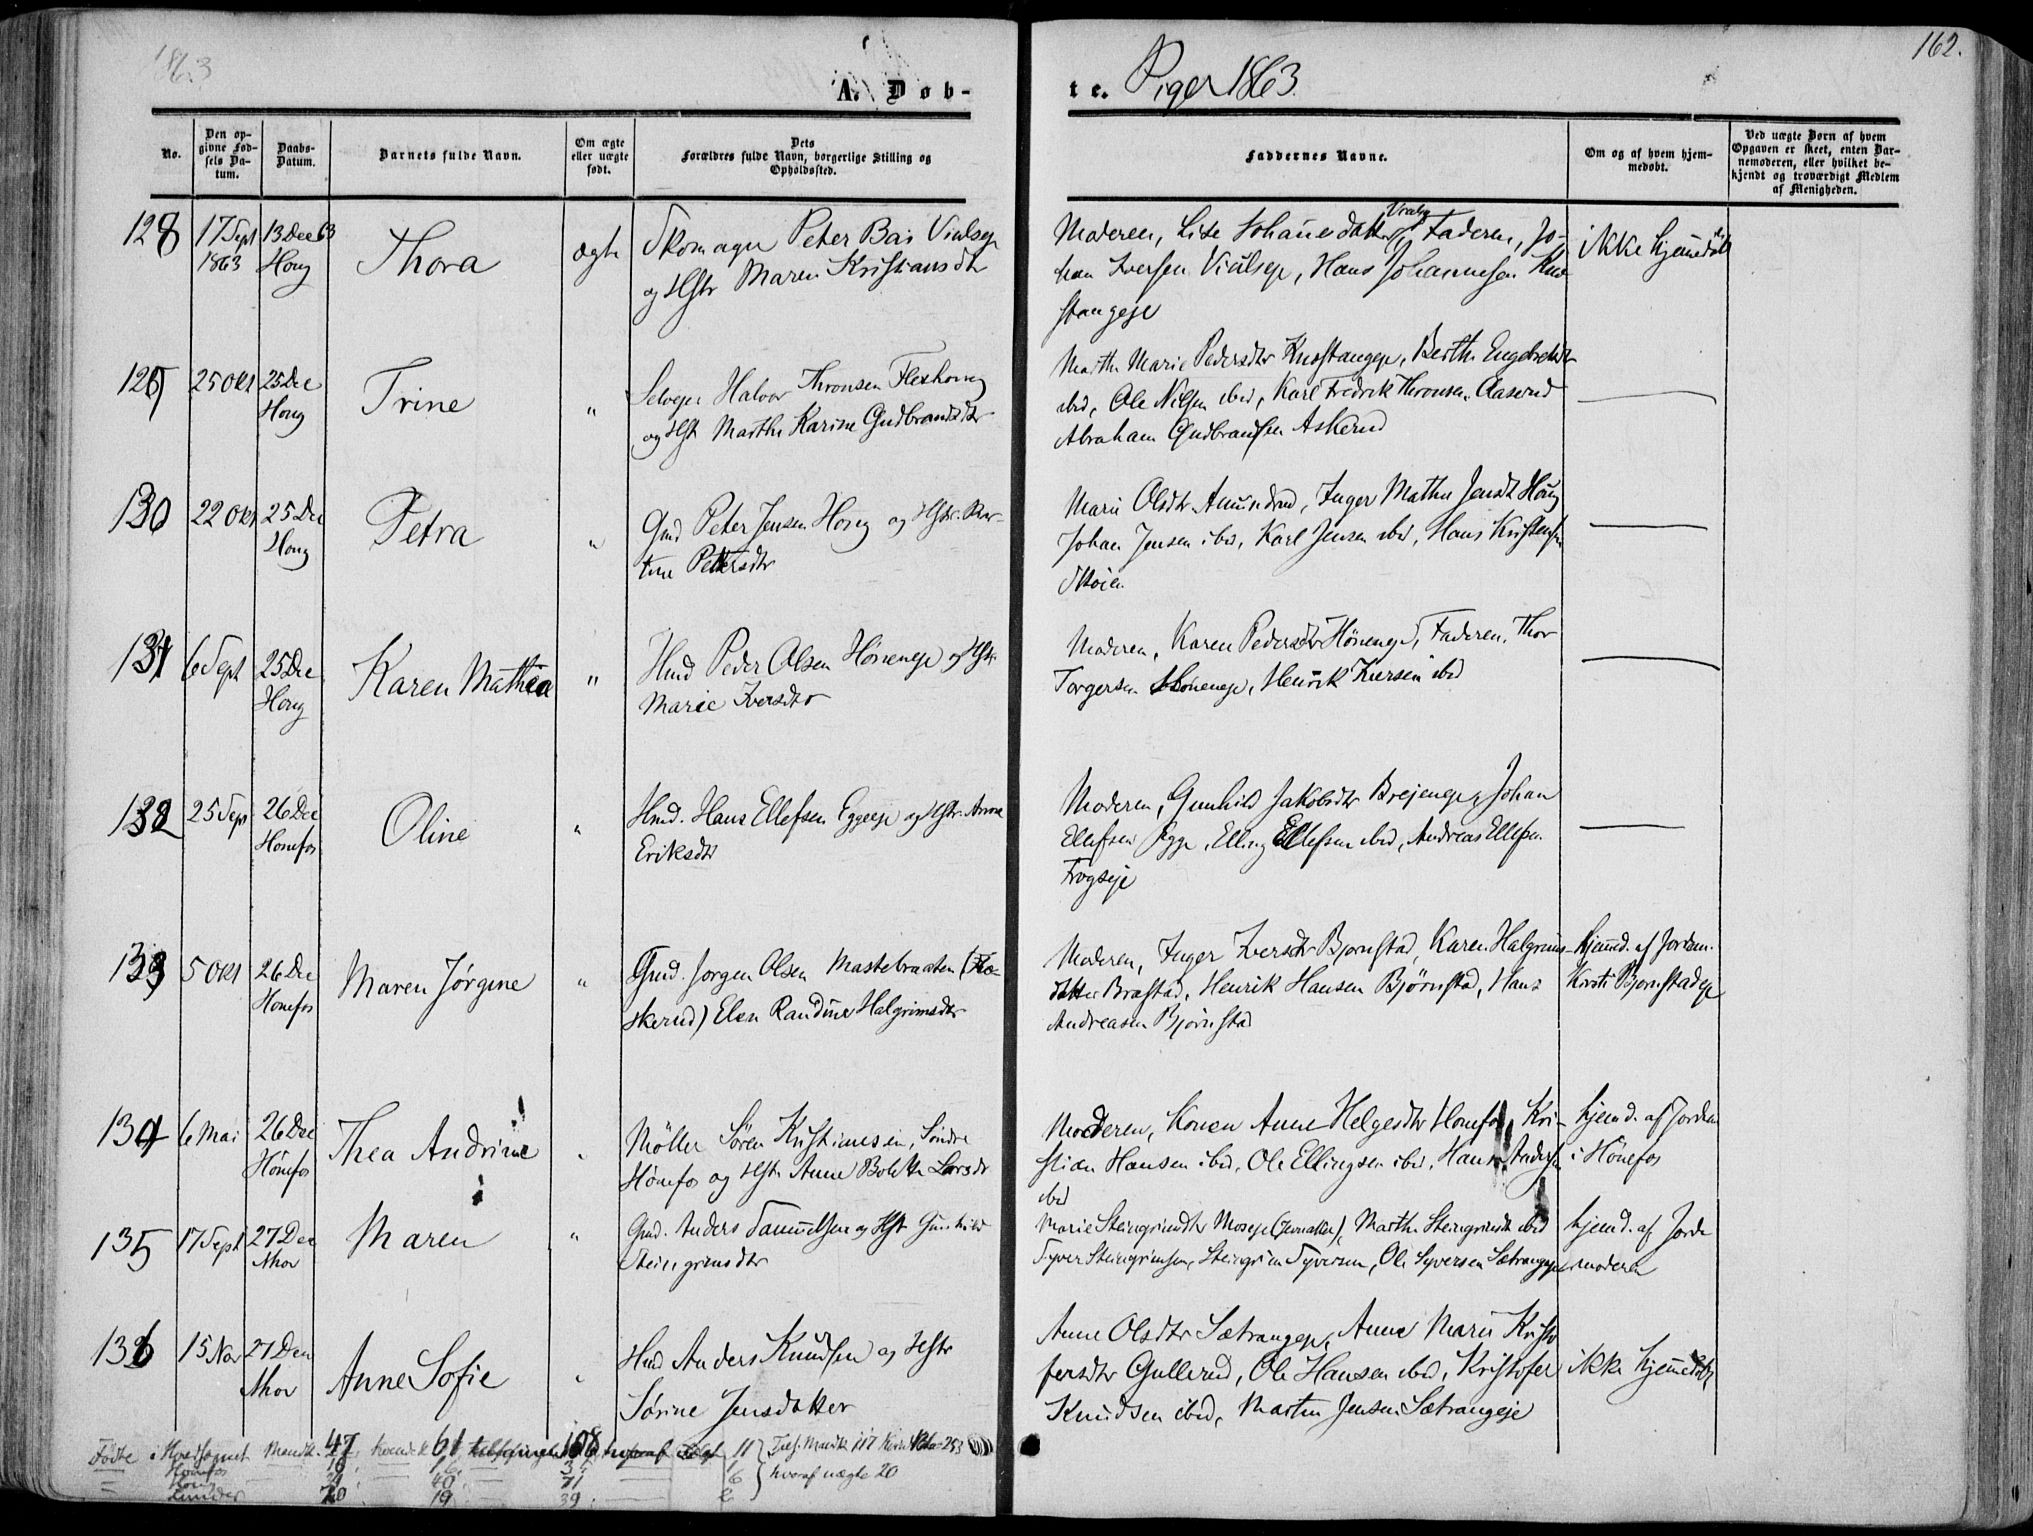 1863
162.
A. Døb-
te. Piger 1863.
No.
Den op-
givne Fød-
sels Da-
tum.
Daabs-
Datum.
Barnets fulde Navn.
Om ægte
eller uægte
født.
Dets
Forældres fulde Navn, borgerlige Stilling og
Opholdssted.
Faddernes Navne.
Om og af hvem hjem-
medøbt.
Ved uægte Børn af hvem
Opgaven er skeet, enten Bar-
nemoderen, eller hvilket be-
kjendt og troværdigt Medlem
af Menigheden.
128
17 Sept
1863
13 Dec 63
Houg
Thora
ægte
Skomager Peter Bai
og Hstr Maren Kristiansdtr
Moderen, Lise Johannesdatter, Faderen, Jo-
han Iversen, Hans Johannesen
stangeje
ikke hjemmedøbt
129
25 Okt
25 Dec
Houg
Trine
"
Selveger Halvor Thronsen Fleskoug
og Hst Marthe Karine Gudbrandsdtr
Marthe Marie Pedersdtr Knestangeje, Berthe Engebretsdtr
ibid, Ole Nilsen ibid, Karl Fredrik Thronsen Aaserud
Abraham Gudbransen Askerud
130
22 Okt
25 Dec
Houg
Petra
"
Gmd Peter Jensen Houg og Hstr. Kar-
tine Petersdtr
Marie Olsdtr, Inger Mathea Jensdt Houg
Johan Jensen ibid, Karl Jensen ibid, Hans Kristensen
Skøien
131
6 Sept
25 Dec
Houg
Karen Mathea
"
Hmd Peder Olsen Höneneje og Hstr
Marie Iversdtr
Moderen, Karen Pedersdtr Höneneje, Faderen, Thor
Torgersen Höneneje, Henrik Iversen ibid
132
25 Sept
26 Dec
Honefos
Oline
"
Hmd. Hans Ellefsen Eggeeje og Hstr. Anne
Eriksdtr
Moderen, Gunhild Jakobsdtr Breieneje, Johan
Ellefsen Egge, Elling Ellefsen ibid, Andreas Ellefsen
Frogseje
133
5 Okt
26 Dec
Honefos
Maren Jørgine
"
Gmd. Jorgen Olsen Mastebraaten
skerud) Elen Randine Halgrimsdtr
Moderen, Inger Iversdtr Bjornstad, Karen Halgrims-
datter Brastad, Henrik Hansen Björnstad, Hans
Andreasen Bjørnstad
hjemmd. af Jordm.
Kirsti Bjornstadeje
134
6 Mai
26 Dec
Hönefos
Thea Andrine
"
Möller Sören Kristiansen, Söndre
Hönefos og Hstr Anne Bolette Larsdtr
Moderen, Konen Anne Helgesdtr Honefos, Kri-
stian Hansen ibid, Ole Ellingsen ibid, Hans Andersen
ibid
hjemd. af Jordem
i Hönefos
135
17 Sept
27 Dec
Nhov
Maren
"
Gmd. Anders Samuelsen og Hstr Gunhild
Steingrimsdtr
Marie Steingrimdtr Moseje, Marthe Steingrimsdtr ibid
Syver Steingrimsen, Steingrim Syversen, Ole Syversen Sætrangeje
hjemd. af Jorde
moderen
136
15 Nov
27 Dec
Nhov
Anne Sofie
"
Hmd Anders Knudsen og Hstr
Sørine Jensdatter
Anne Olsdtr Sætrangeje, Anne Marie Kristo
fersdtr Gullerud, Ole Hansen ibid, Kristofer
Knudsen ibid, Martin Jensen Sætrangeje
ikke hjemmedøbt
Fødte i Hovedsognet Mandk. 47. Kvindk 61 108 11 } Tils. Mandk 117 253
Honefos 16
Houg 40 71 6 } hvoraf uægte 20
Lunder 20 19 39 2